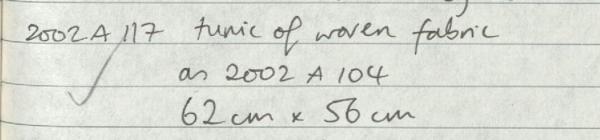 2002 A 117 tunic of woven fabric
as 2002 A 104
62 cm x 56 cm